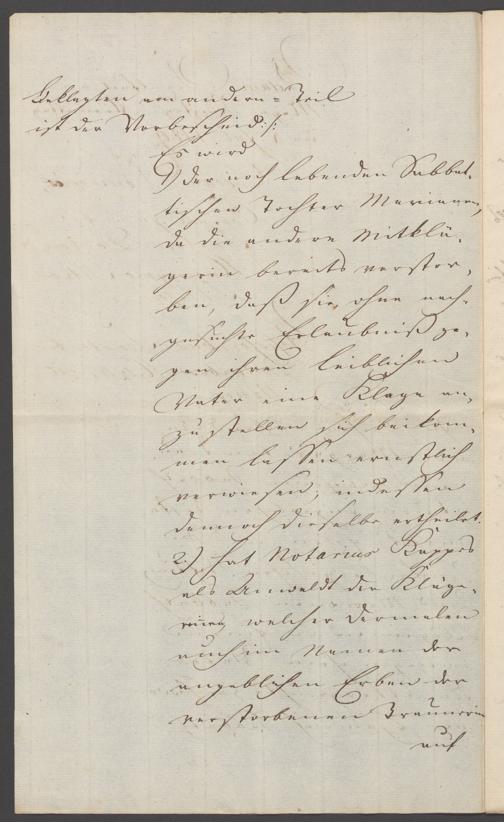 Beklagten am andern=Teil
ist der Vorbescheid:/:
Es wird
1) der noch lebenden Sabbat-
tischen Tochter Mariannen,
da die andere Mitklä-
gerin bereits verstor-
ben, daß sie, ohne nach-
gesuchte Erlaubniß ge-
gen ihren leiblichen
Vater eine Klage an-
zustellen sich beikom-
men lassen ernstlich
verwiesen, indessen
dennoch dieselbe ertheilet.
2) hat Notarius Kappes
als Anwaldt der Kläge-
rinen welcher dermalen
auch im Namen der
angeblichen Erben der
verstorbenen
auf